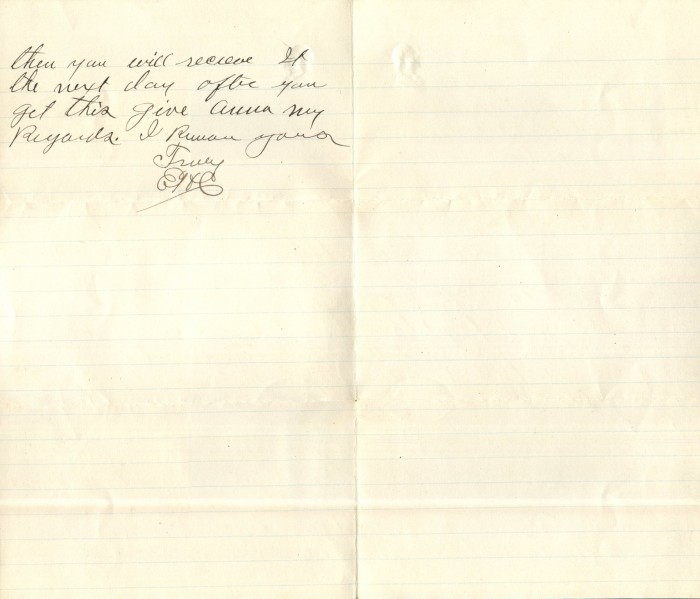 then you will recieve It
the next day after you
get this give Anna my
Regards. I Remain yours
Truly